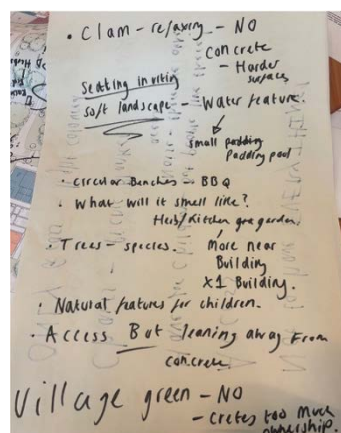 • Clam - relaxing - NO
concrete
- Harder
surfaces
Seatling inviting
soft landscape - Water feature.
small padding
Padding pool
• circular Benches - BBQ
• What will it smell like?
Herb/Kitchen gra garden.
• Trees - species. More near
Building
X1 Building.
• Natural features for children.
• Access But leaning away from
concrete
Village green - NO
- cretes too much
ownership.